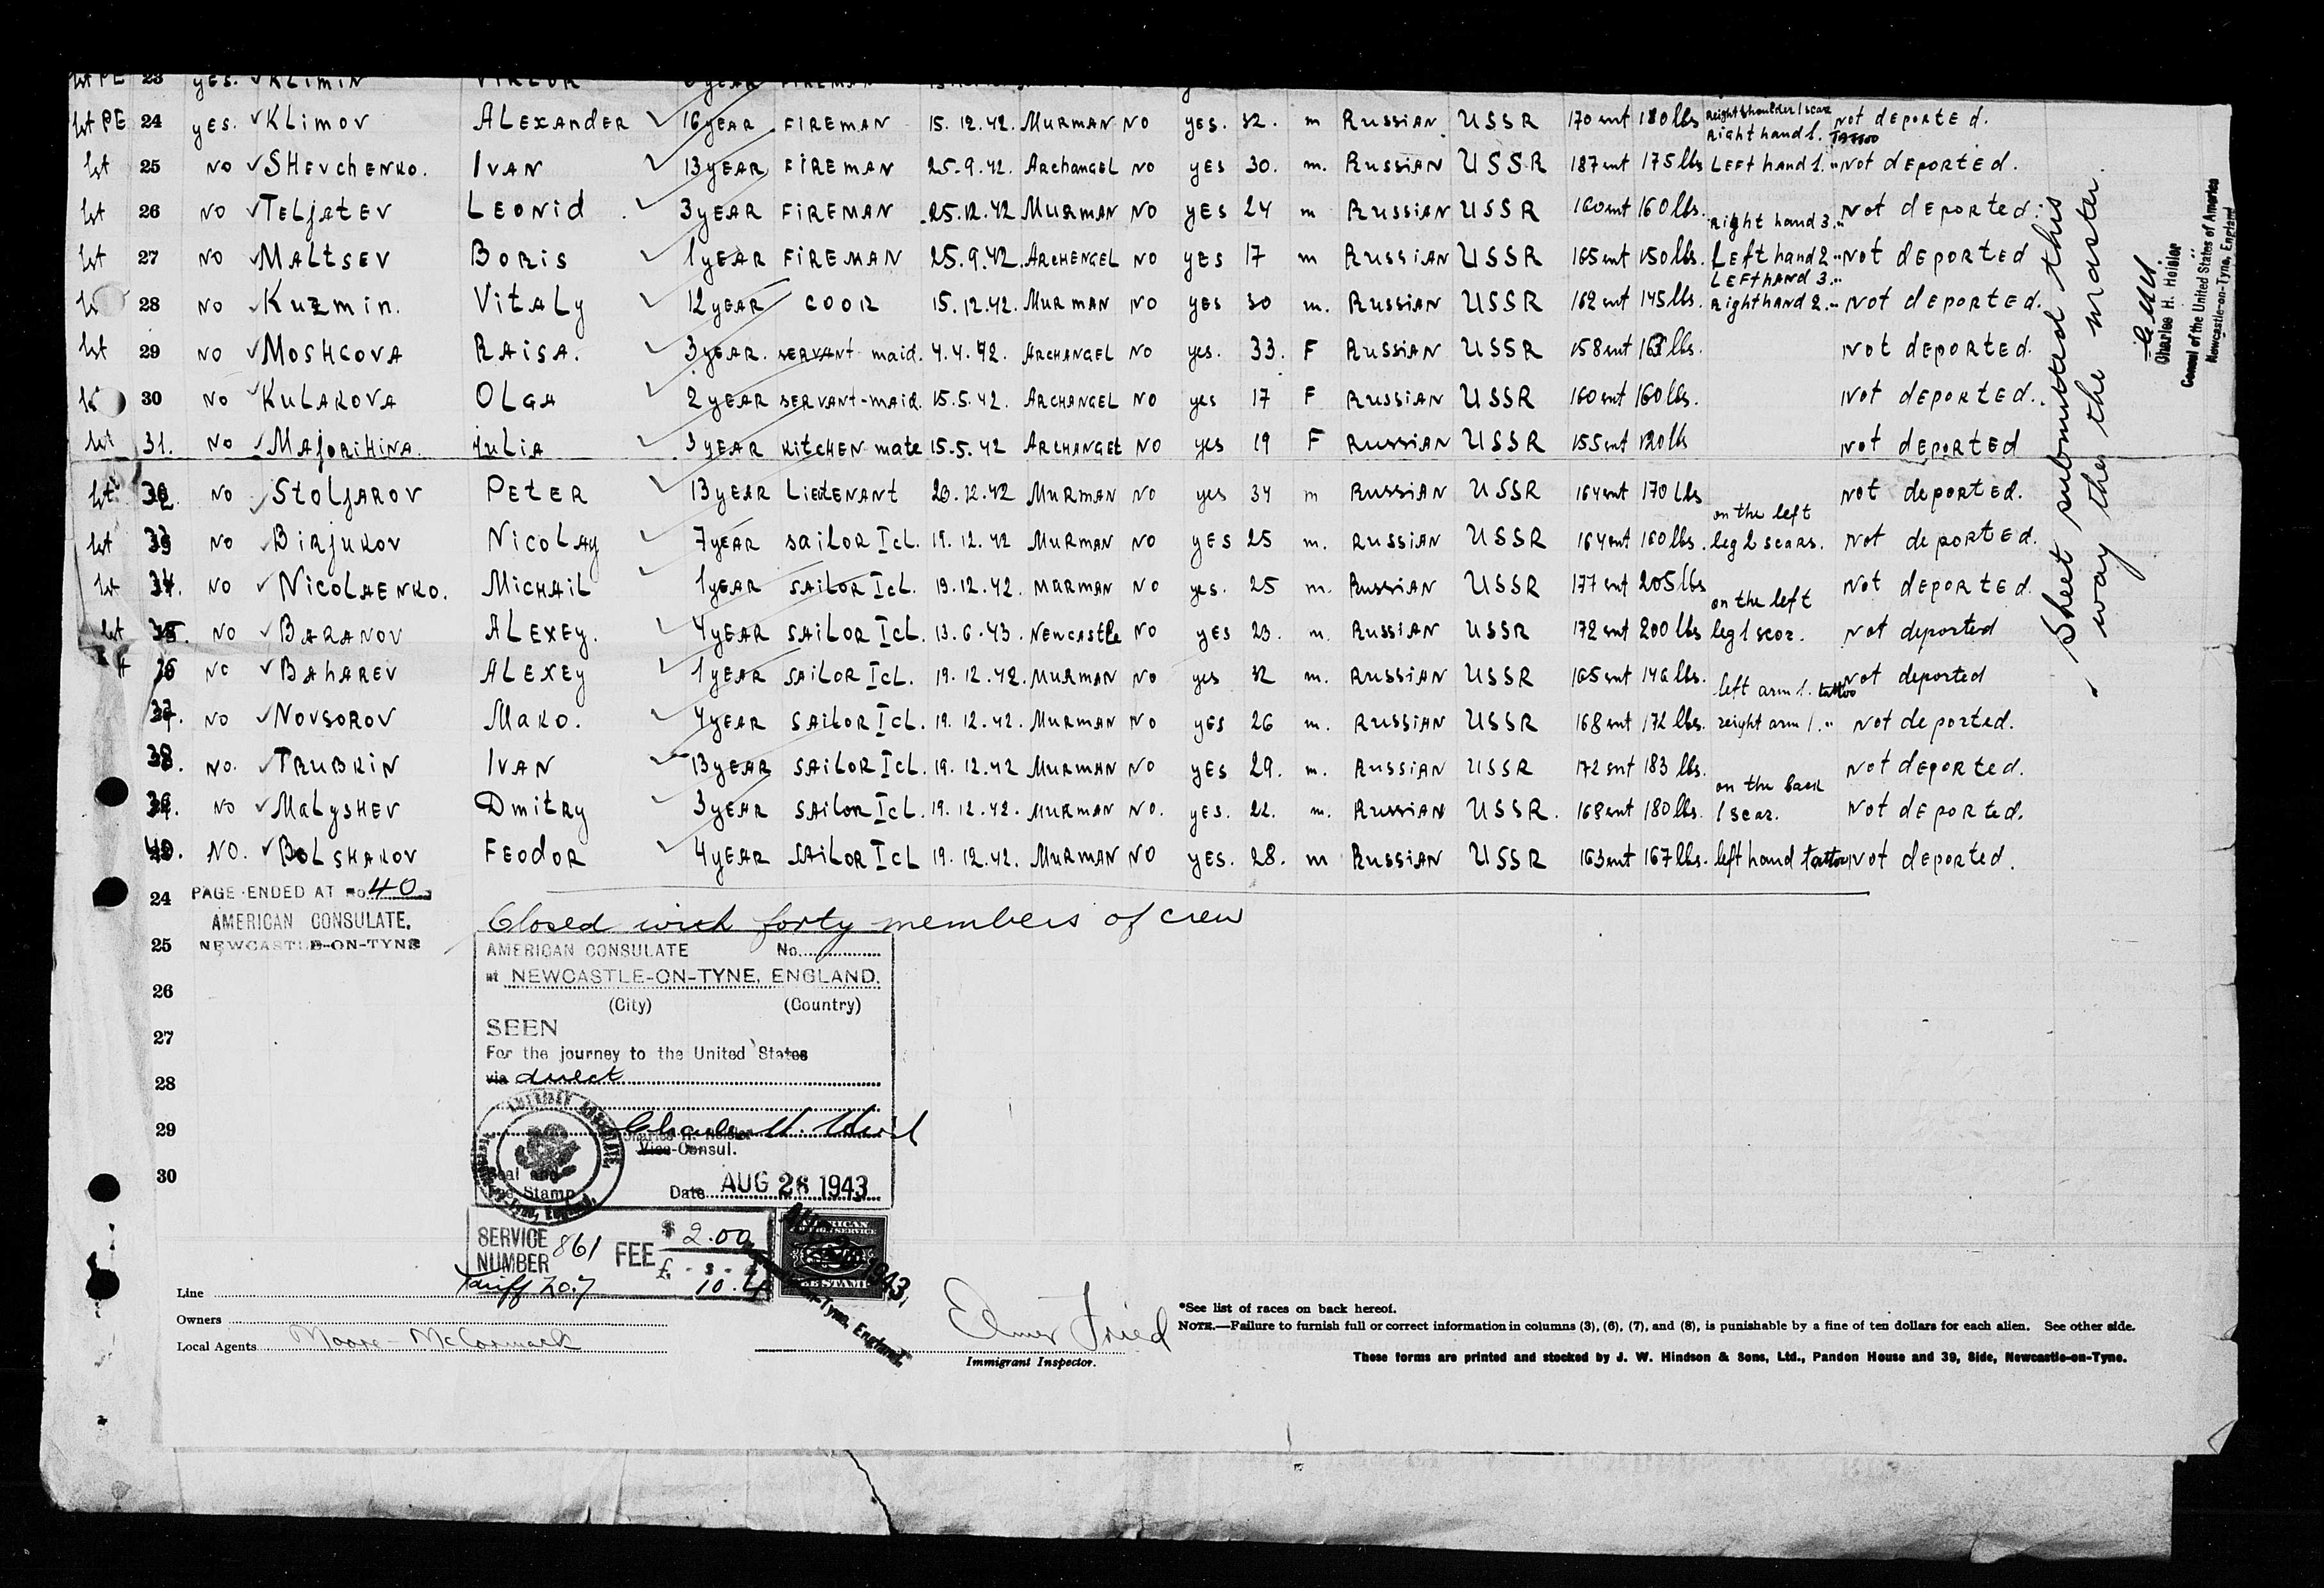 1st PE 23 yes. ✓ KLimin VIKTOR
1st PE 24 yes. ✓ KLimov ALExAndER ✓ 16 yEAR FiREMAN 15.12.42. MuRMAN NO yes. 32. m Russian USSR 170 smt 180 lbs Right shoulder 1 scar Right hand 1. TATTOO Not deported.
1st 25 NO ✓ SHEvchENKO. IvAN ✓ 13 yEAR FiREMAN 25.9.42. ArchangEL NO yES 30. m. Russian USSR 187 smt 175 lbs LEFT hand 1. " Not dEpoRtEd.
1st 26 NO ✓ TELjatEv LEOnid ✓ 3 yEAR FiREMAN 25.12.42 MuRMAN NO yES 24 m Russian USSR 160 smt 160 lbs. Right hand 3. " Not dEported.
1st 27 NO ✓ MALtsEv BORis ✓ 1 yEAR FiREMAN 25.9.42. ARcHENGEL NO yES 17 m Russian USSR 165 smt 150 lbs. LEft hand 2 " Not dEpoRtEd
28 NO ✓ Kuzmin. VitALy ✓ 12 yEAR COOK 15.12.42. MuRMAN NO yES 30 m. Russian USSR 162 smt 145 lbs. LEFT hAND 3. " Right hand 2. " Not dEpoRtEd.
1st 29 NO ✓ MOSHCOVA RAiSA. ✓ 3 yEAR. sERvant maid. 4.4.42. ARcHANGEL NO yes. 33. F Russian USSR 158 smt 163 lbs. Not dEpoRtEd.
30 NO ✓ KuLAKOVA OLGA ✓ 2 yEAR sERvant-maid. 15.5.42. ARcHANGEL NO yes 17 F Russian USSR 160 smt 160 lbs. Not dEpoRtEd.
1st 31. NO ✓ MAjoRiHiNA. juLiA ✓ 3 yEAR KitCHEN mate 15.5.42 ARcHANGEL NO yes 19 F Russian USSR 155 smt 120 lbs Not dEpoRtEd
1st 32. NO ✓ StOLjAROV PEtER ✓ 13 yEAR LiEutENANT 20.12.42 MuRMAN NO yes 34 m Russian USSR 164 smt 170 lbs Not dEpoRtEd.
1st 33 NO ✓ BiRjuKov NicoLAy ✓ 7 yEAR SaiLOR I cL. 19.12.42 MuRMAN NO yES 25 m. Russian USSR 164 smt 160 lbs. on the left leg 2 scars. Not dEpoRtEd.
1st 34. NO ✓ NicoLAENKO. MicHAiL ✓ 1 yEAR SAiLOR I cL. 19.12.42. MuRMAN NO yes. 25 m. Russian USSR 177 smt 205 lbs Not dEpoRtEd.
1st 35. NO ✓ BARANOV ALExEy. ✓ 4 yEAR SAiLOR I cL. 13.6.43. NEwcastLe NO yES 23. m. Russian USSR 172 smt 200 lbs on the left leg 1 scar. Not dEported
36 NO ✓ BAhAREv ALExEy ✓ 1 yEAR SAiLOR I cL. 19.12.42. MuRMAN NO yes 32 m. Russian USSR 165 smt 146 lbs. Not deported
37. NO ✓ NOVSOROV MaKO. ✓ 4 yEAR SAiLOR I cL. 19.12.42. MuRMAN NO yES 26 m. Russian USSR 168 smt 172 lbs. left arm 1. tattoo reight arm 1. " Not deported.
38. NO. ✓ TRUBKiN IvAN ✓ 13 yEAR SAiLOR I cL. 19.12.42 MuRMAN NO yES 29. m. Russian USSR 172 smt 183 lbs. Not dEported.
39. NO ✓ MaLySHEV Dmitry ✓ 3 yEAR SAiLor I cL. 19.12.42. MuRMAN NO. yES. 22. m. Russian USSR. 168 smt 180 lbs. on the back 1 scar. Not dEported.
40. NO. ✓ BOLSHAKOV FEOdOR ✓ 4 yEAR SAiLOR I cL 19.12.42. MuRMAN NO yES. 28. m Russian USSR 163 smt 167 lbs. left hand tattoo Not dEpoRtEd.
Sheet submitted this
way the the master.
Charles H. Heisler
Consul of the United States of America
Newcastle-on-Tyne, England
24 PAGE ENDED AT No 40
AMERICAN CONSULATE.
25 NEWCASTLE-ON-TYNE
Closed with forty members of crew
AMERICAN CONSULATE No.
at NEWCASTLE-ON-TYNE, ENGLAND.
26
(City) (Country)
SEEN
27
For the journey to the United States
28 via direct
29
Charles H. Heisler
Vice-Consul.
30
Seal and
Fee Stamp
Date AUG 28 1943
SERVICE NUMBER 861 FEE $ 2.00
£ - s - d
Tariff No. 7 10.4
AMERICAN
FOREIGN SERVICE
FEE STAMP
1943,
-Tyne, England.
Line
Owners
Local Agents Moore-McCormack
Elmer Fried
Immigrant Inspector.
*See list of races on back hereof.
NOTE.—Failure to furnish full or correct information in columns (3), (6), (7), and (8), is punishable by a fine of ten dollars for each alien. See other side.
These forms are printed and stocked by J. W. Hindson & Sons, Ltd., Pandon House and 39, Side, Newcastle-on-Tyne.